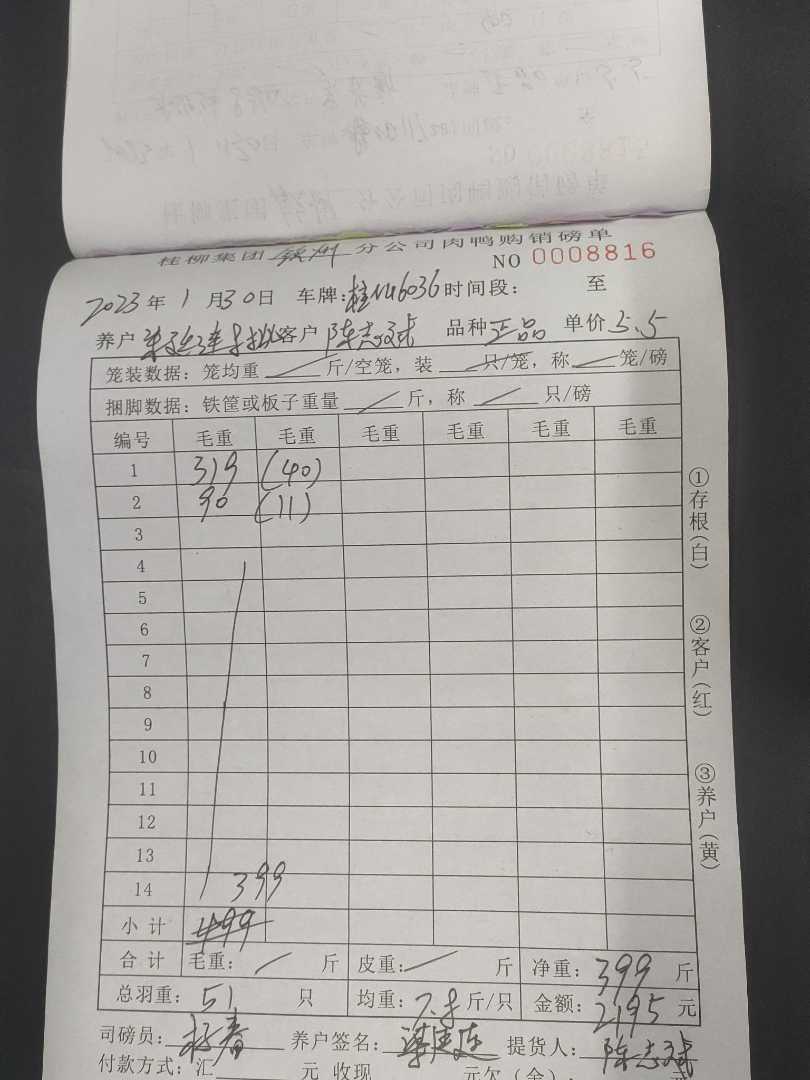 桂柳集团 钦州 分公司肉鸭购销磅单
NO 0008816
2023 年 1 月 30 日 车牌: 桂N46036 时间段: 至
养户 客户 陈志斌 品种 正品 单价 5.5
笼装数据: 笼均重 斤/空笼, 装 只/笼, 称 笼/磅
捆脚数据: 铁筐或板子重量 斤, 称 只/磅
编号 毛重 毛重 毛重 毛重 毛重 毛重
1 319 (40)
2 90 (11)
3
4
5
6
7
8
9
10
11
12
13
14 399
小计
合计 毛重: 斤 皮重: 斤 净重: 399 斤
总羽重: 51 只 均重: 7.8 斤/只 金额: 2195 元
司磅员: 养户签名: 提货人: 陈志斌
付款方式: 汇 元 收现 元欠(余): 元
①存根(白)
②客户(红)
③养户(黄)